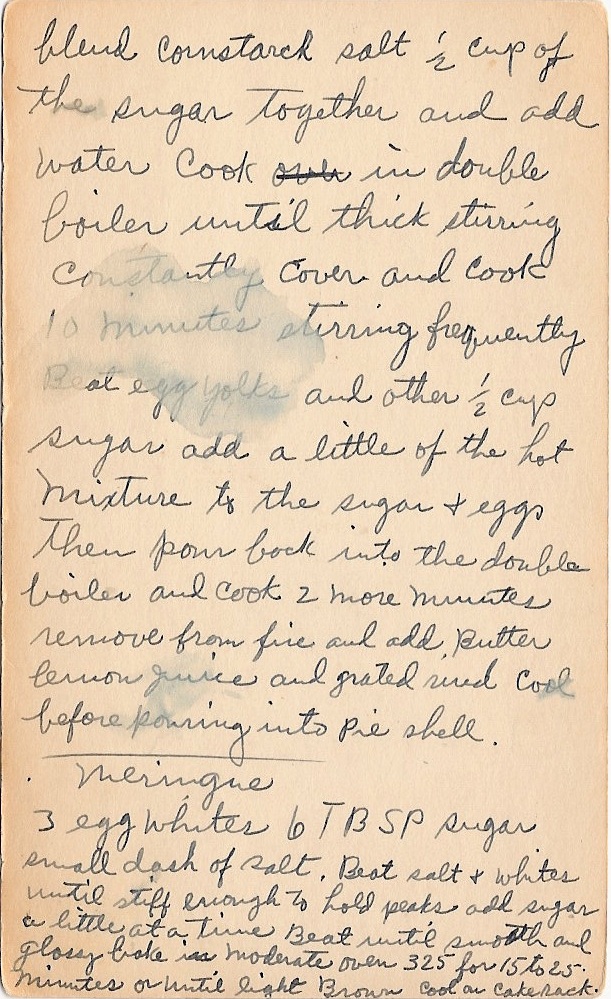 blend cornstarch salt ½ cup of
the sugar together and add
water Cook over in double
boiler until thick stirring
constantly Cover and Cook
10 minutes stirring frequently
Beat egg yolks and other ½ cup
sugar add a little of the hot
mixture to the sugar & eggs
Then pour back into the double
boiler and cook 2 more minutes
remove from fire and add Butter
lemon juice and grated rind Cool
before pouring into pie shell.
Meringue
3 egg whites 6 TBSP sugar
small dash of salt. Beat salt & whites
until stiff enough to hold peaks add sugar
a little at a time Beat until smooth and
glossy bake in moderate oven 325 for 15 to 25.
minutes or until light Brown Cool on cake rack.